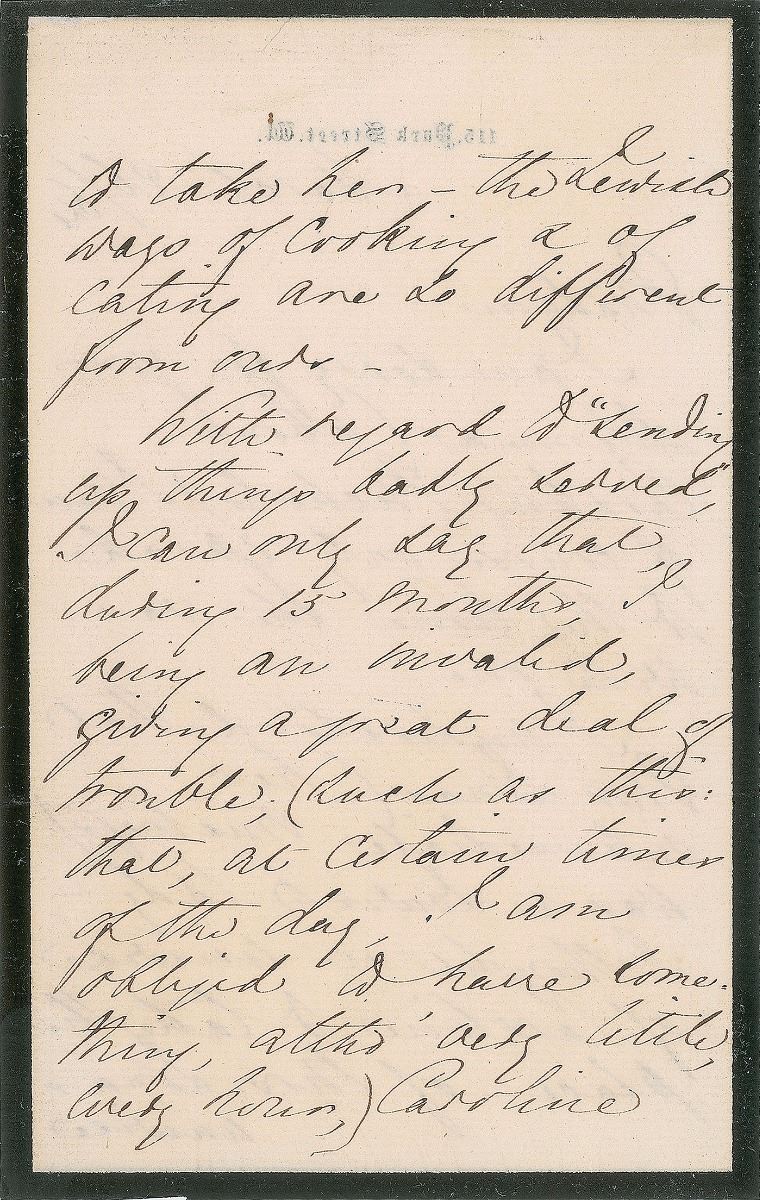 115, Park Street. W.
to take her – the Jewish
ways of cooking & of
eating are so different
from ours –
With regard to "sending
up things badly served",
I can only say that,
during 15 months, I
being an invalid,
giving a great deal of
trouble, (such as this:
that, at certain times
of the day, I am
obliged to have some-
thing, altho' very little,
every hour,) Caroline